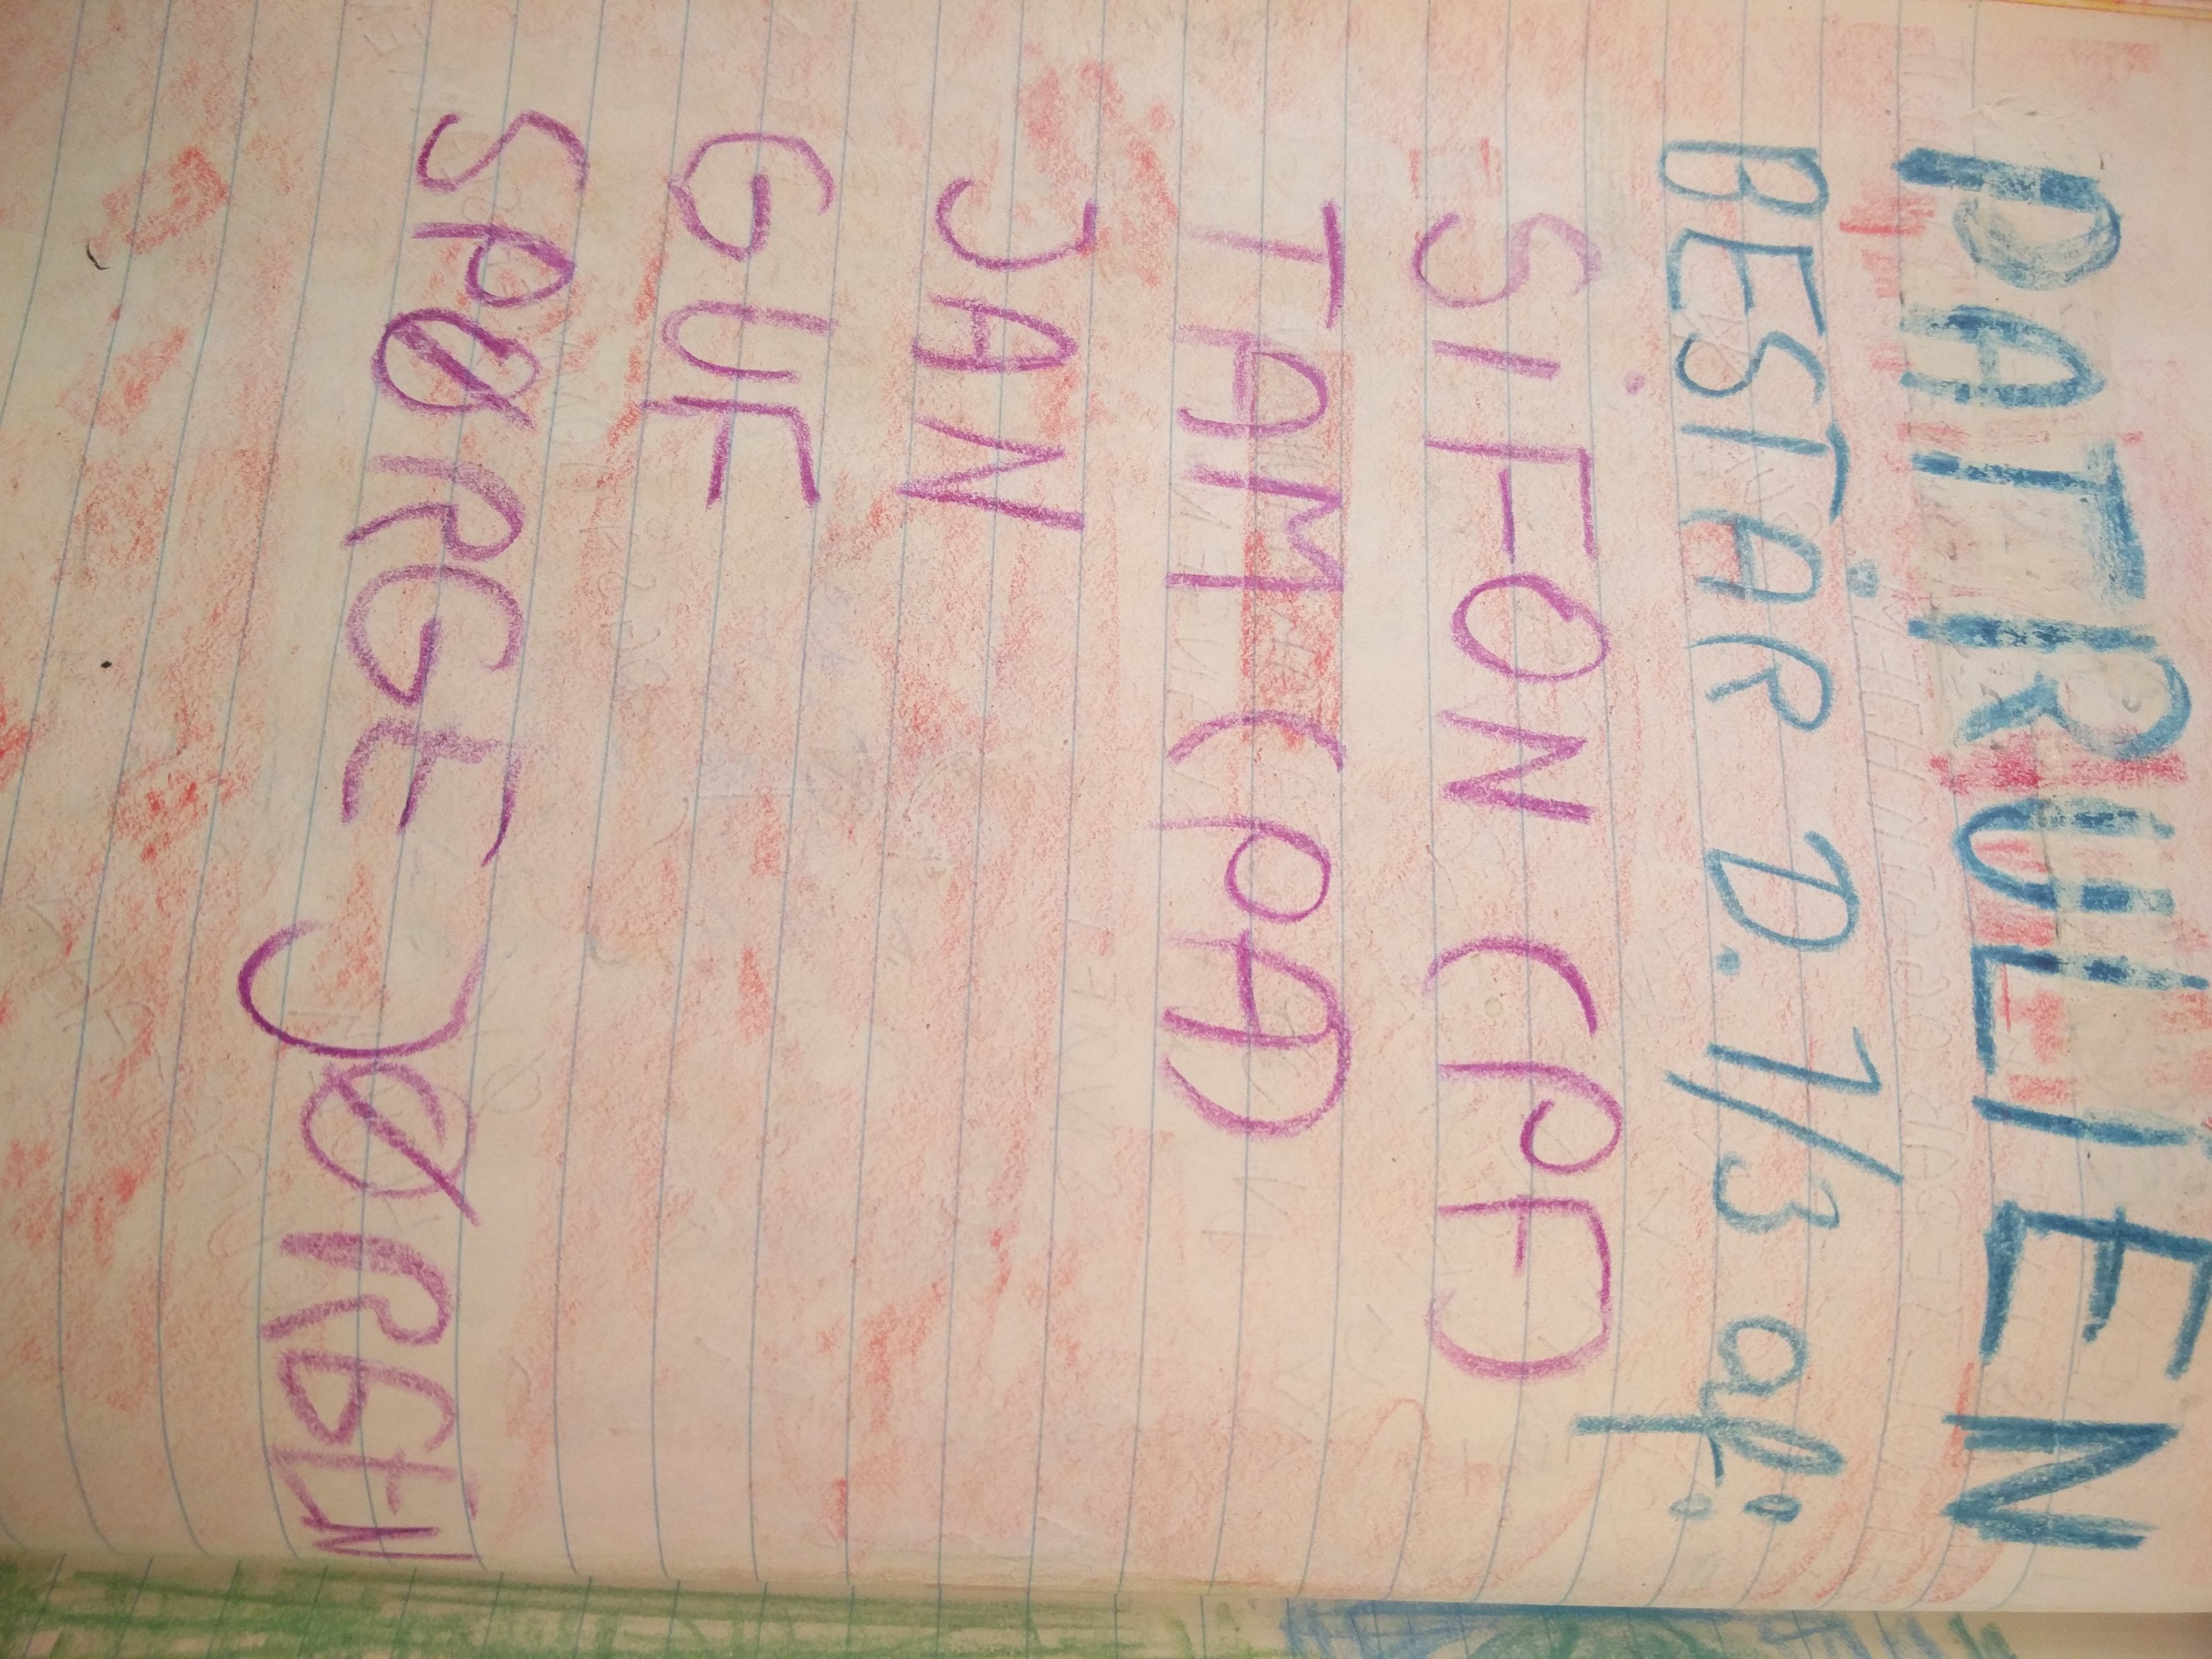 PATRULIEN
BESTÅR D. 1/3 af:
SIFON (PF)
TAM (PA)
JAN
GUF
SPØRGE JØRGEN